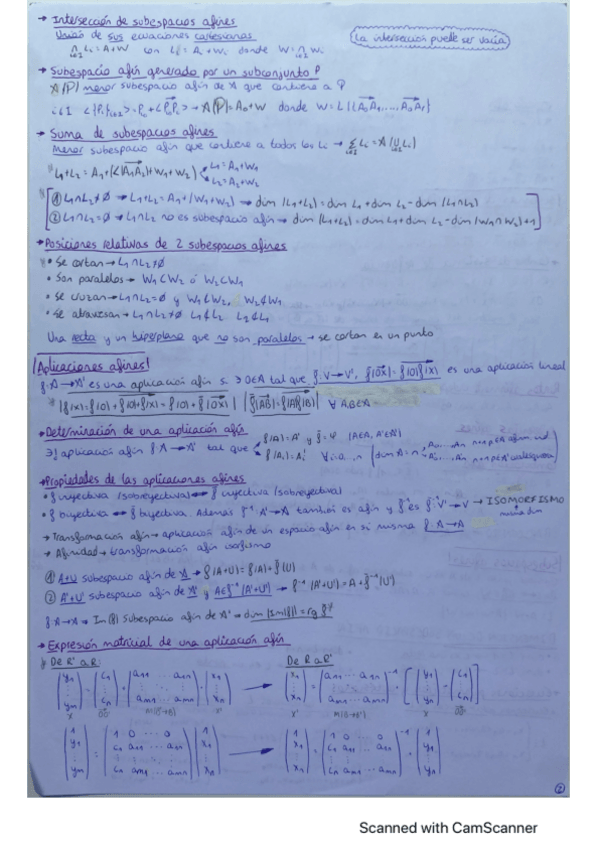 → Intersección de subespacios afines
Unión de sus ecuaciones cartesianas
(La intersección puede ser vacía)
∩ Li = A + W con Li = Ai + Wi donde W = ∩ Wi
→ Subespacio afín generado por un subconjunto P
A(P) menor subespacio afín de A que contiene a P
donde W = L({A0A1, ..., A0An})
→ Suma de subespacios afines
Menor subespacio afín que contiene a todos los Li → Σ Li = A(∪ Li)
L1+L2 = A1 + (L(A1A2) + W1 + W2) L1 = A1 + W1
L2 = A2 + W2
① L1∩L2 ≠ ∅ → L1+L2 = A1 + (W1+W2) → dim(L1+L2) = dim L1 + dim L2 - dim(L1∩L2)
② L1∩L2 = ∅ → L1∩L2 no es subespacio afín → dim(L1+L2) = dim L1 + dim L2 - dim(W1∩W2) + 1
→ Posiciones relativas de 2 subespacios afines
• Se cortan → L1∩L2 ≠ ∅
• Son paralelos → W1⊂W2 ó W2⊂W1
• Se cruzan → L1∩L2 = ∅ y W1⊄W2, W2⊄W1
• Se atraviesan → L1∩L2 ≠ ∅ L1⊄L2 L2⊄L1
Una recta y un hiperplano que no son paralelos → se cortan en un punto
Aplicaciones afines
f: A → A' es una aplicación afín si ∃ O∈A tal que f: V → V', f(OX) = f(O)f(X) es una aplicación lineal
f(X) = f(O) + f(O)f(X) = f(O) + f(OX) | f(AB) = f(A)f(B) ∀ A,B∈A
→ Determinación de una aplicación afín
∃! aplicación afín f: A → A' tal que f(A) = A' y f = φ (A∈A, A'∈A')
f(Ai) = Ai' ∀i = 0...n
→ Propiedades de las aplicaciones afines
• f inyectiva (sobreyectiva) ⟺ f inyectiva (sobreyectiva)
• f biyectiva ⟺ f biyectiva. Además f⁻¹: A' → A también es afín y f⁻¹ es f⁻¹: V' → V → ISOMORFISMO
→ Transformación afín → aplicación afín de un espacio afín en sí mismo f: A → A
→ Afinidad → transformación afín
① A+U subespacio afín de A → f(A+U) = f(A) + f(U)
② A'+U' subespacio afín de A' y A∈f⁻¹(A'+U') → f⁻¹(A'+U') = A + f⁻¹(U')
f: A → A' → Im(f) subespacio afín de A' → dim(Im(f)) = rg f
→ Expresión matricial de una aplicación afín
De R' a R:
De R a R':
(y1 ⋮ ym) = (c1 ⋮ cn) + (a11 ... a1n ⋮ am1 ... amn) · (x1 ⋮ xn) → (x1 ⋮ xn) = (a11 ... a1n ⋮ am1 ... amn)⁻¹ · [(y1 ⋮ yn) - (c1 ⋮ cn)]
(1 y1 ⋮ ym) = (1 0 ... 0 c1 a11 ... a1n ⋮ cn am1 ... amn) (1 x1 ⋮ xn) → (1 x1 ⋮ xn) = (1 0 ... 0 c1 a11 ... a1n ⋮ cn am1 ... amn)⁻¹ (1 y1 ⋮ yn)
②
Scanned with CamScanner